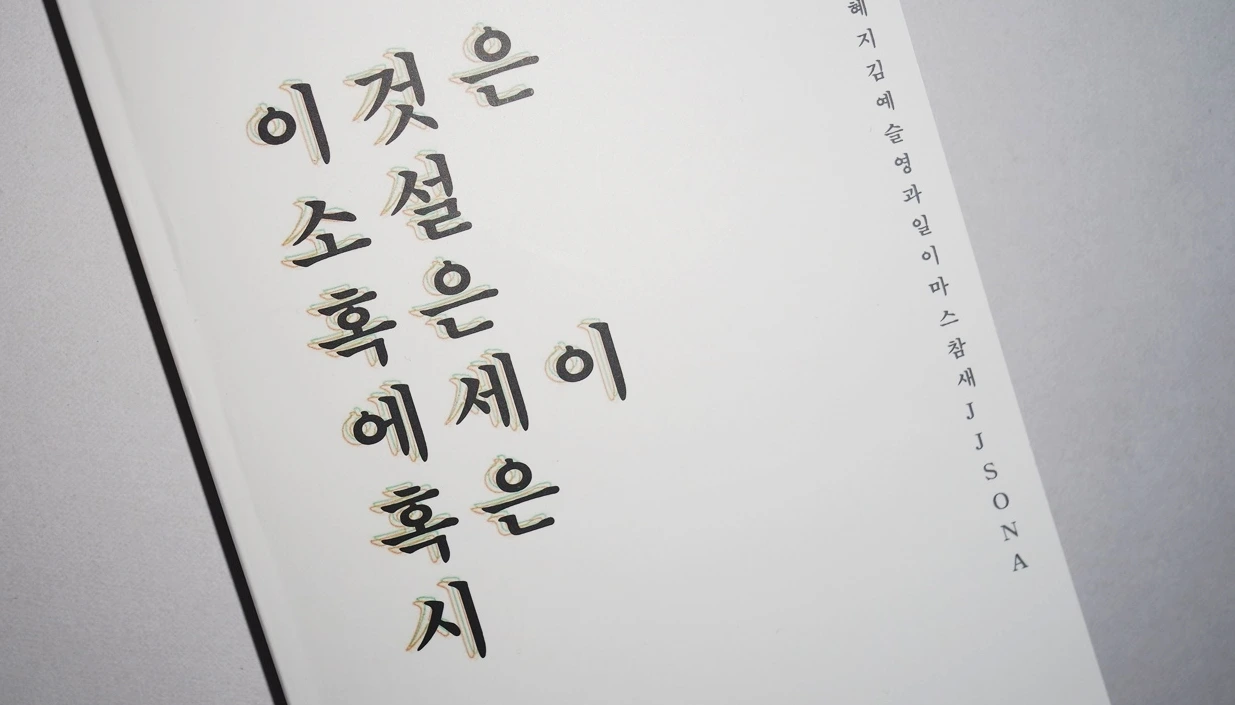 이것은
소설
혹은
에세이
혹은
시
혜지김예슬영과일이마스참새JJSONA